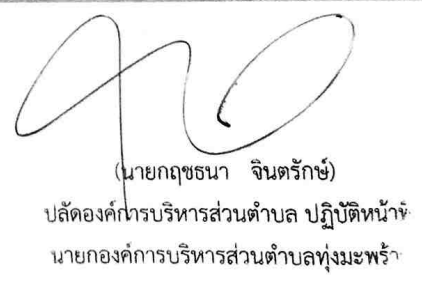 (นายกฤชธนา จินตรักษ์)
ปลัดองค์การบริหารส่วนตำบล
นายกองค์การบริหารส่วนตำบลทุ่งมะพร้า